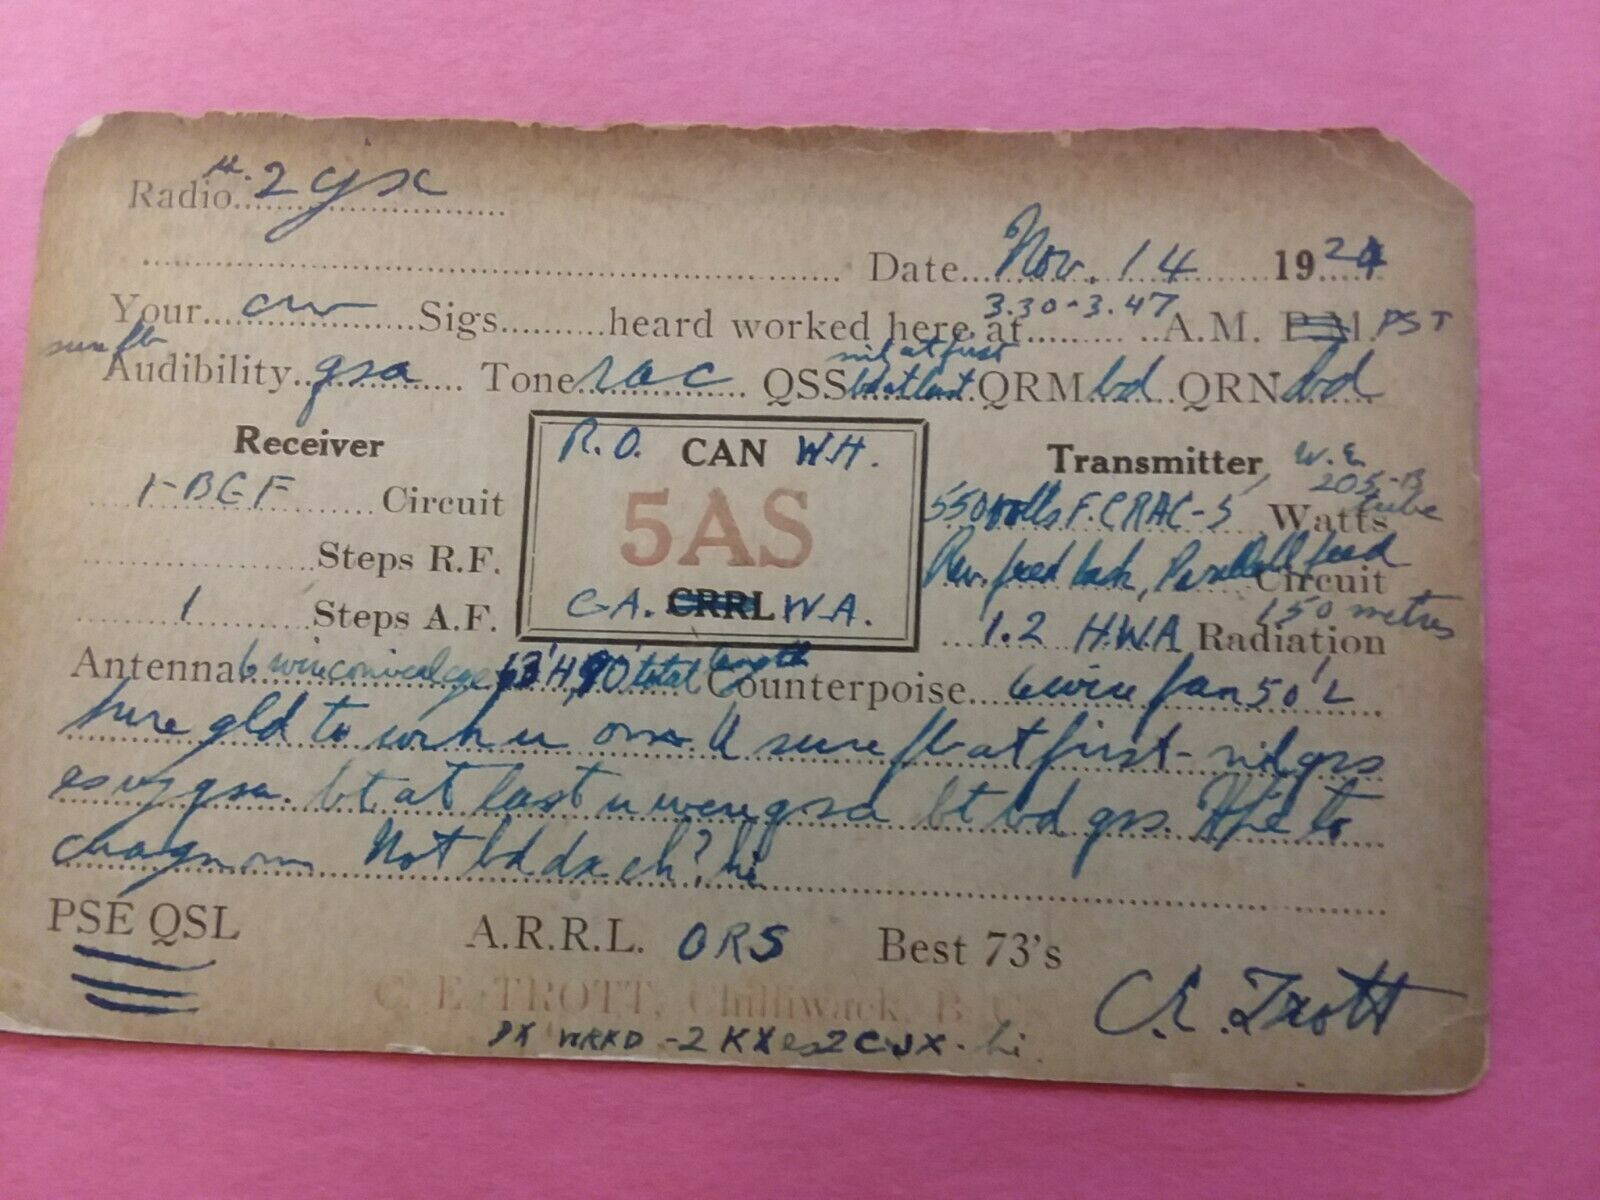 Radio 2 cjx
Date Nov. 14 1924
3.30-3.47
Your cw Sigs heard worked here at A.M. P.M. PST
sure fb nil at first
Audibility qsa Tone rac QSS bd at last QRM bd QRN bd
Receiver R.O. CAN W.H. Transmitter, W.E.
205-B tube
Circuit 550 volts F.C RAC-5 Watts
5AS
Steps R.F. Rev. feed back, Parallell feed Circuit
1 Steps A.F. C.A. CRRL W.A. 150 metres
1.2 H.W.A Radiation
Antenna 6 wire conical cage 63'H, 90' total length Counterpoise 6 wire fan 50'L
Sure gld to wrk u om. U sure fb at first - nil qrs
es vy qsa. bt at last u were qsa bt bd qrs. Hpe to
cuagn om Not bd dx eh? hi
PSE QSL A.R.R.L. ORS Best 73's
C. E. TROTT, Chilliwack, B. C.
C.E. Trott
DX WRKD - 2KX es 2CJX. hi